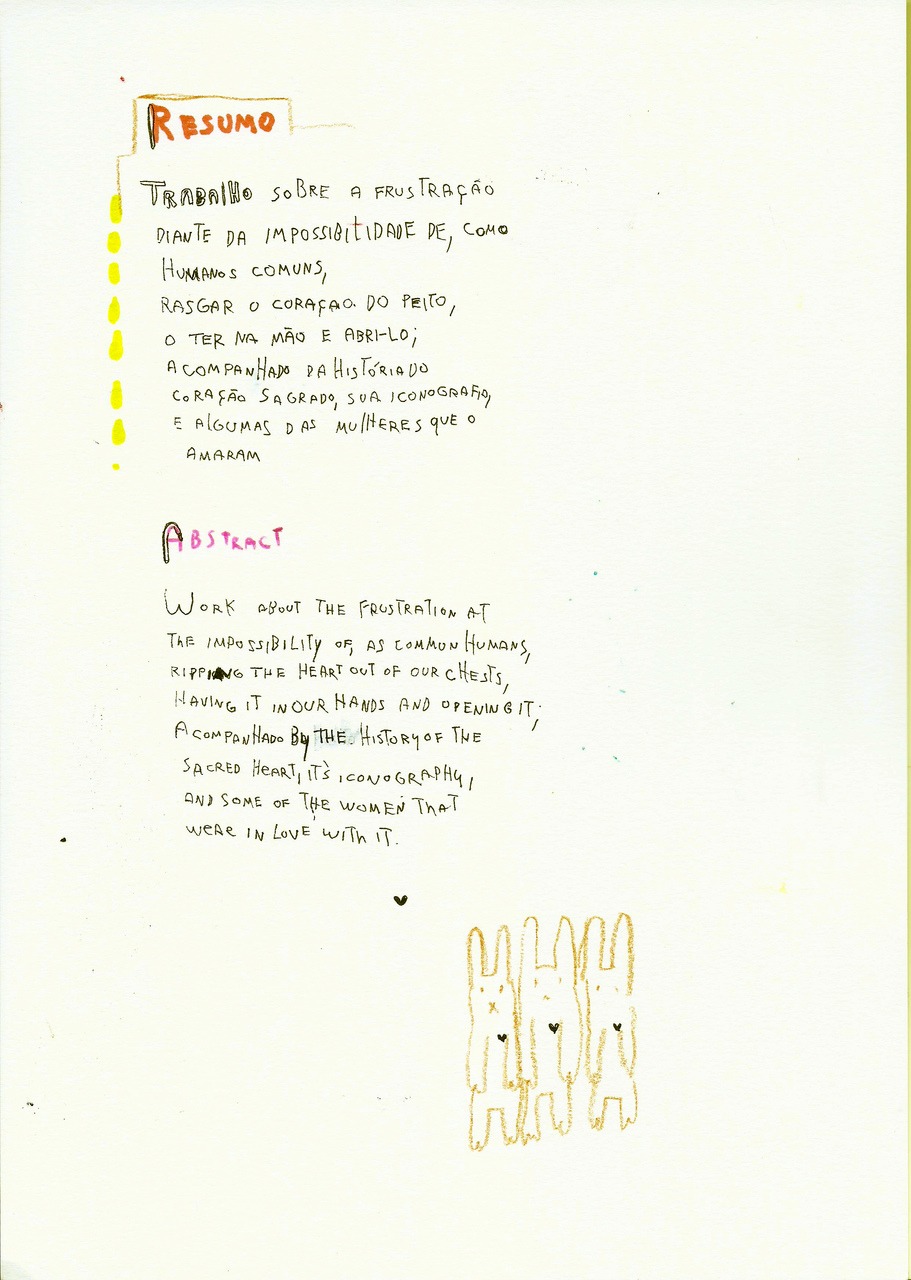 RESUMO
TRABALHO SOBRE A FRUSTRAÇÃO
DIANTE DA IMPOSSIBILIDADE DE, COMO
HUMANOS COMUNS,
RASGAR O CORAÇAO DO PEITO,
O TER NA MÃO E ABRI-LO;
ACOMPANHADO DA HISTÓRIA DO
CORAÇÃO SAGRADO, SUA ICONOGRAFIA,
E ALGUMAS DAS MULHERES QUE O
AMARAM
ABSTRACT
WORK ABOUT THE FRUSTRATION AT
THE IMPOSSIBILITY OF, AS COMMON HUMANS,
RIPPING THE HEART OUT OF OUR CHESTS,
HAVING IT IN OUR HANDS AND OPENING IT;
ACOMPANHADO BY THE HISTORY OF THE
SACRED HEART, IT'S ICONOGRAPHY,
AND SOME OF THE WOMEN THAT
WEAR IN LOVE WITH IT.